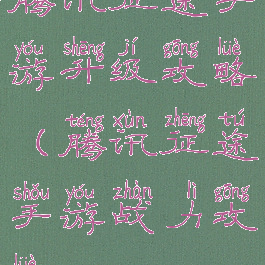 腾讯征途手
yóu shēng jí gōng lüè
游升级攻略
téng xùn zhēng tú
（腾讯征途
shǒu yóu zhàn lì gōng
手游战力攻
lüè